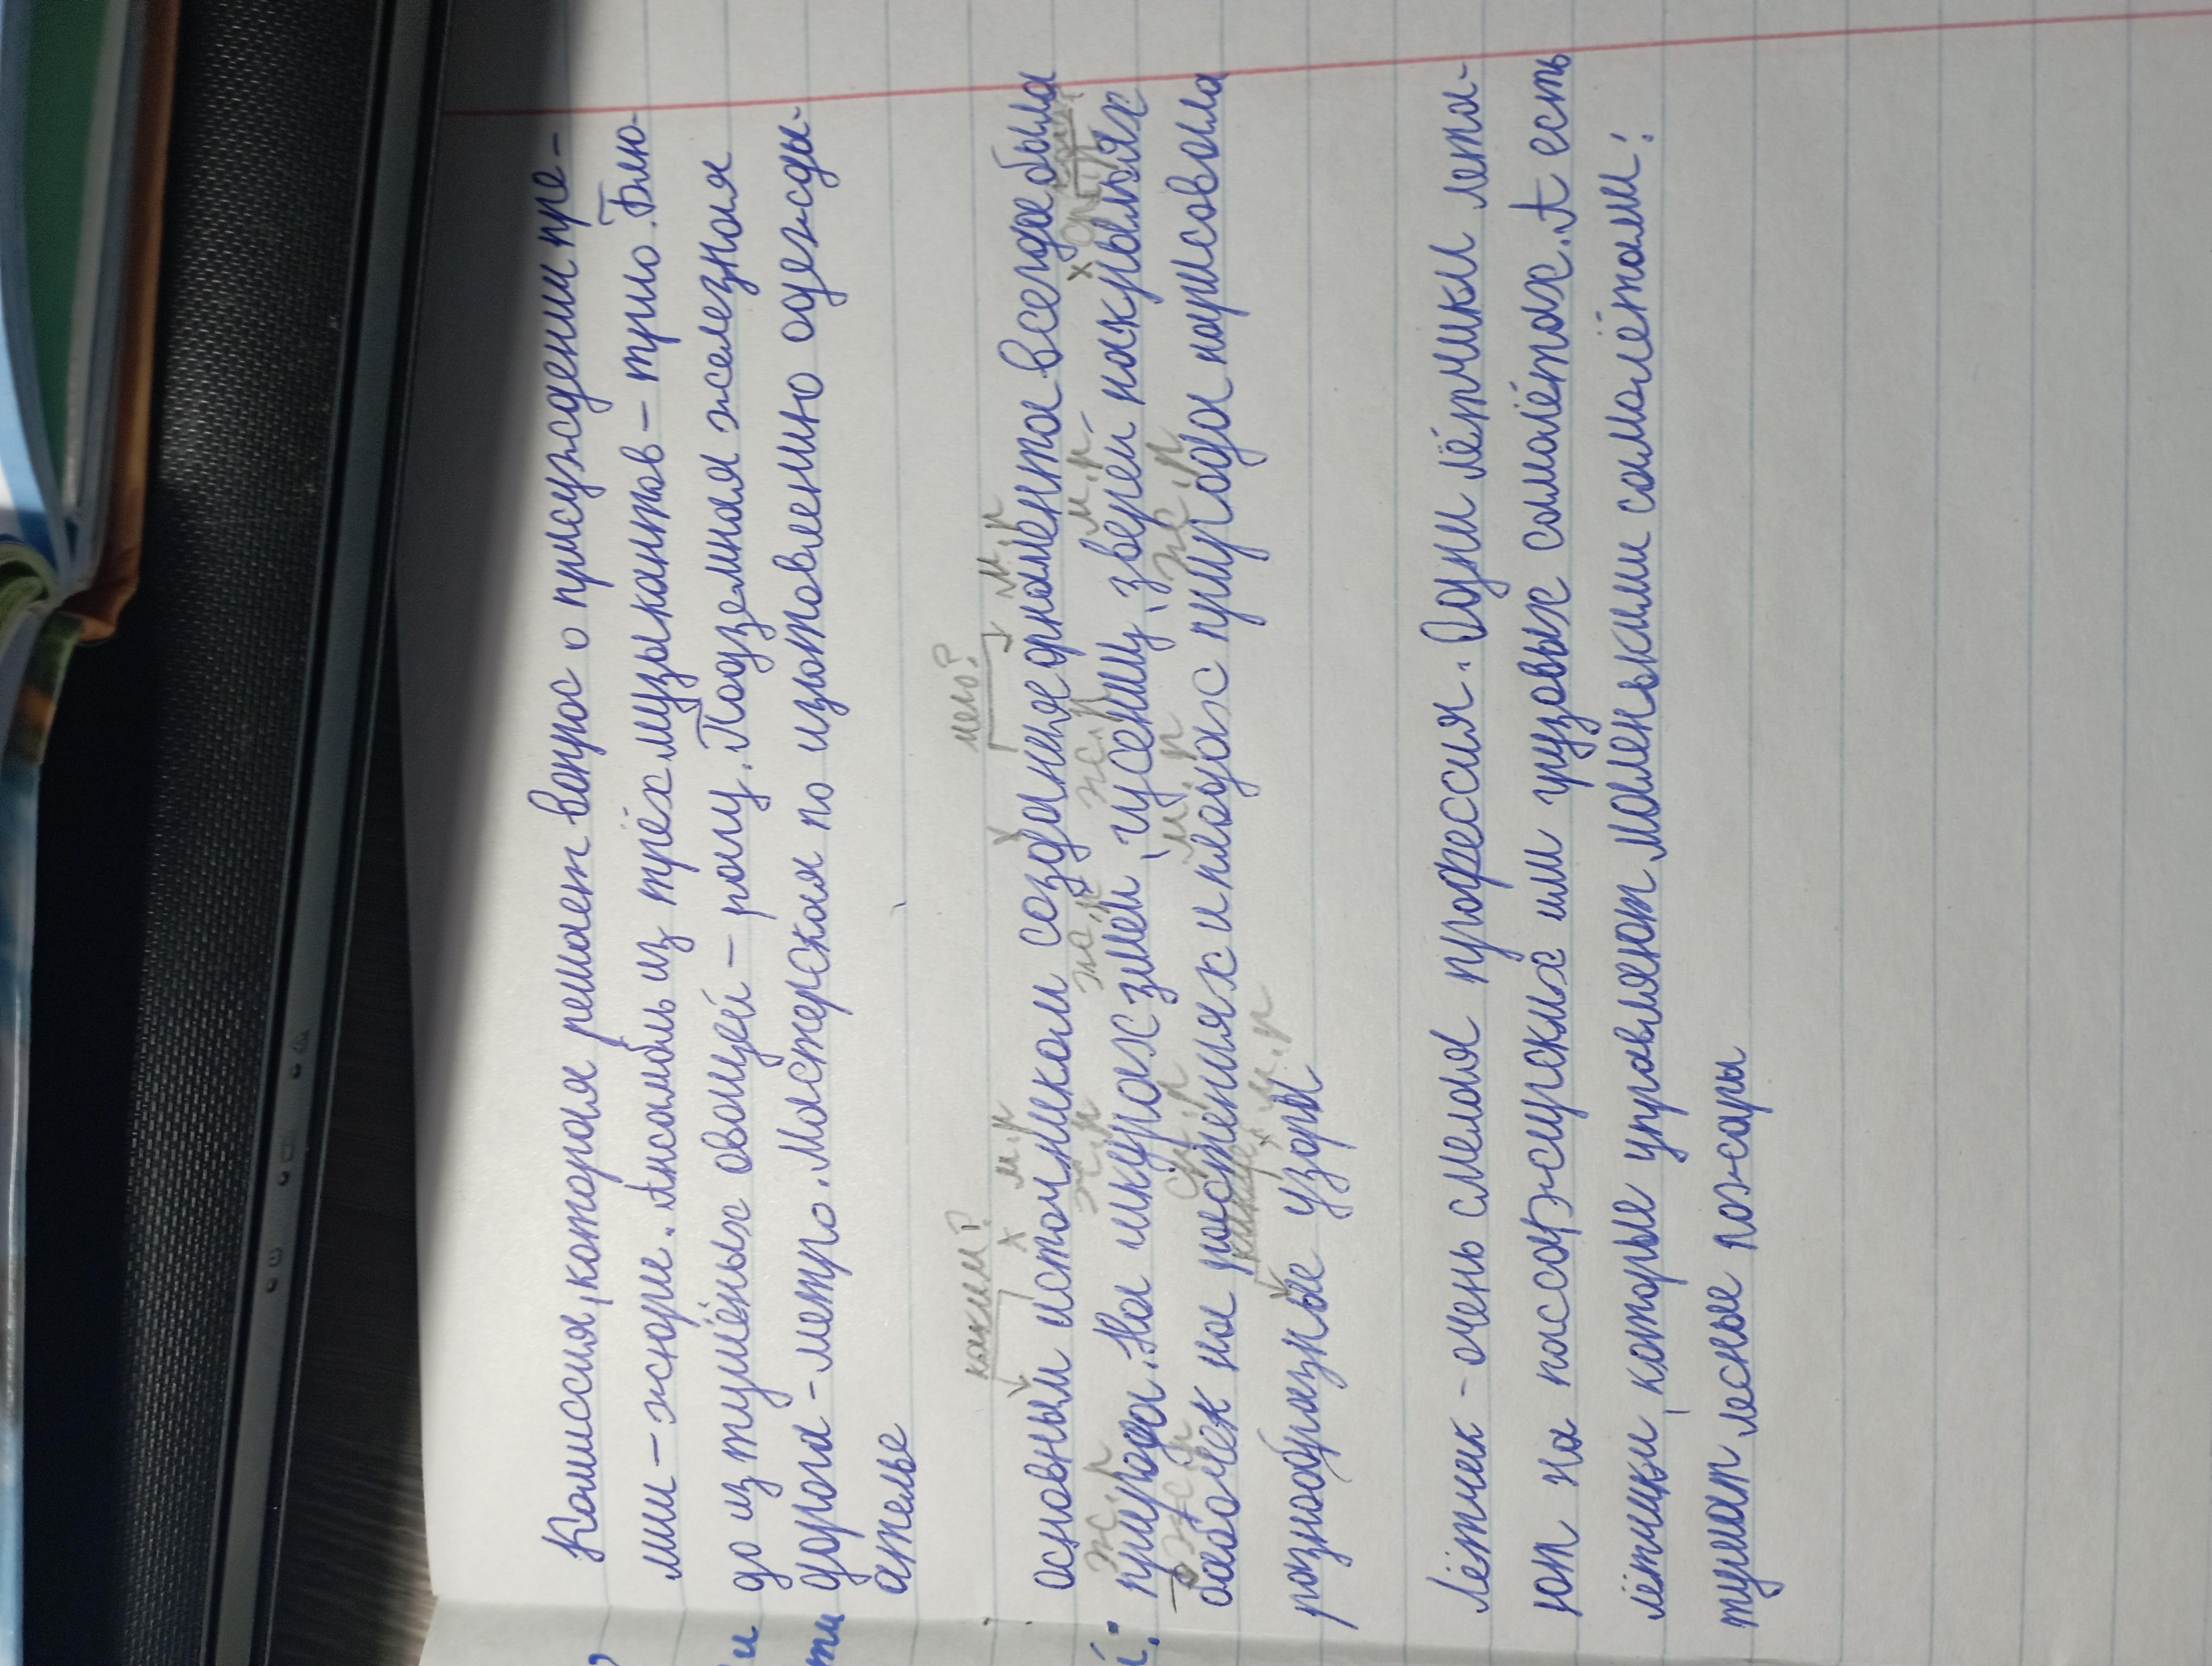 Комиссия, которая решает вопрос о присуждении пре-
мии - жюри. Ансамбль из трёх музыкантов - трио. Блю-
до из тушёных овощей - рагу. Подземная железная
дорога - метро. Мастерская по изготовлению одежды-
ателье
каким? чего?
х м.р х м.р
основным источником создания орнамента всегда была
ж.р ж.р ж.р ж.р м.р. х
природа. На шкурах змей, гусениц, зверей на крыльях
ж.р ср.р м.р ж.р
бабочек на растениях и плодах природа нарисовала
какие х м.р
разнообразные узоры
Лётчик - очень смелая профессия. Одни лётчики лета-
ют на пассажирских или грузовых самолётах. А есть
лётчики, которые управляют маленькими самолётами:
тушат лесные пожары
и
ти